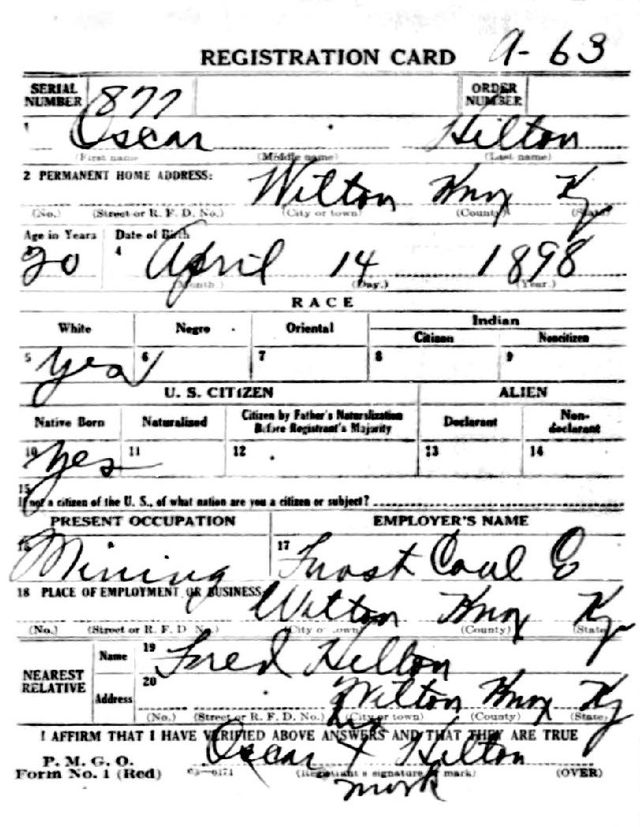 REGISTRATION CARD A-63
SERIAL NUMBER 877 ORDER NUMBER
1 Oscar Hilton
(First name) (Middle name) (Last name)
2 PERMANENT HOME ADDRESS: Wilton Knox Ky
(No.) (Street or R. F. D. No.) (City or town) (County) (State)
Age in Years Date of Birth
20 4 April 14 1898
(Month) (Day.) (Year.)
RACE
White Negro Oriental Indian
Citizen Noncitizen
5 Yes 6 7 8 9
U. S. CITIZEN ALIEN
Native Born Naturalized Citizen by Father's Naturalization Before Registrant's Majority Declarant Non-declarant
10 Yes 11 12 13 14
15
If not a citizen of the U. S., of what nation are you a citizen or subject?
PRESENT OCCUPATION EMPLOYER'S NAME
16 Mining 17 Frost Coal C
18 PLACE OF EMPLOYMENT OR BUSINESS: Wilton Knox Ky
(No.) (Street or R. F. D. No.) (City or town) (County) (State)
NEAREST RELATIVE Name 19 Fred Hilton
Address 20 Wilton Knox Ky
(No.) (Street or R. F. D. No.) (City or town) (County) (State)
I AFFIRM THAT I HAVE VERIFIED ABOVE ANSWERS AND THAT THEY ARE TRUE
his
P. M. G. O. Oscar X Hilton
Form No. 1 (Red) 03-6171 (Registrant's signature or mark) (OVER)
mark